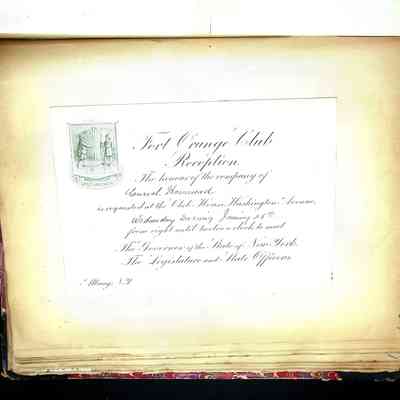 Fort Orange Club
Reception
The honour of the company of
is requested at the Club House, Washington Avenue,
Wednesday Evening January
from eight until twelve o'clock to meet
The Governor of the State of New York,
The Legislature and State Officers
Albany, N.Y.